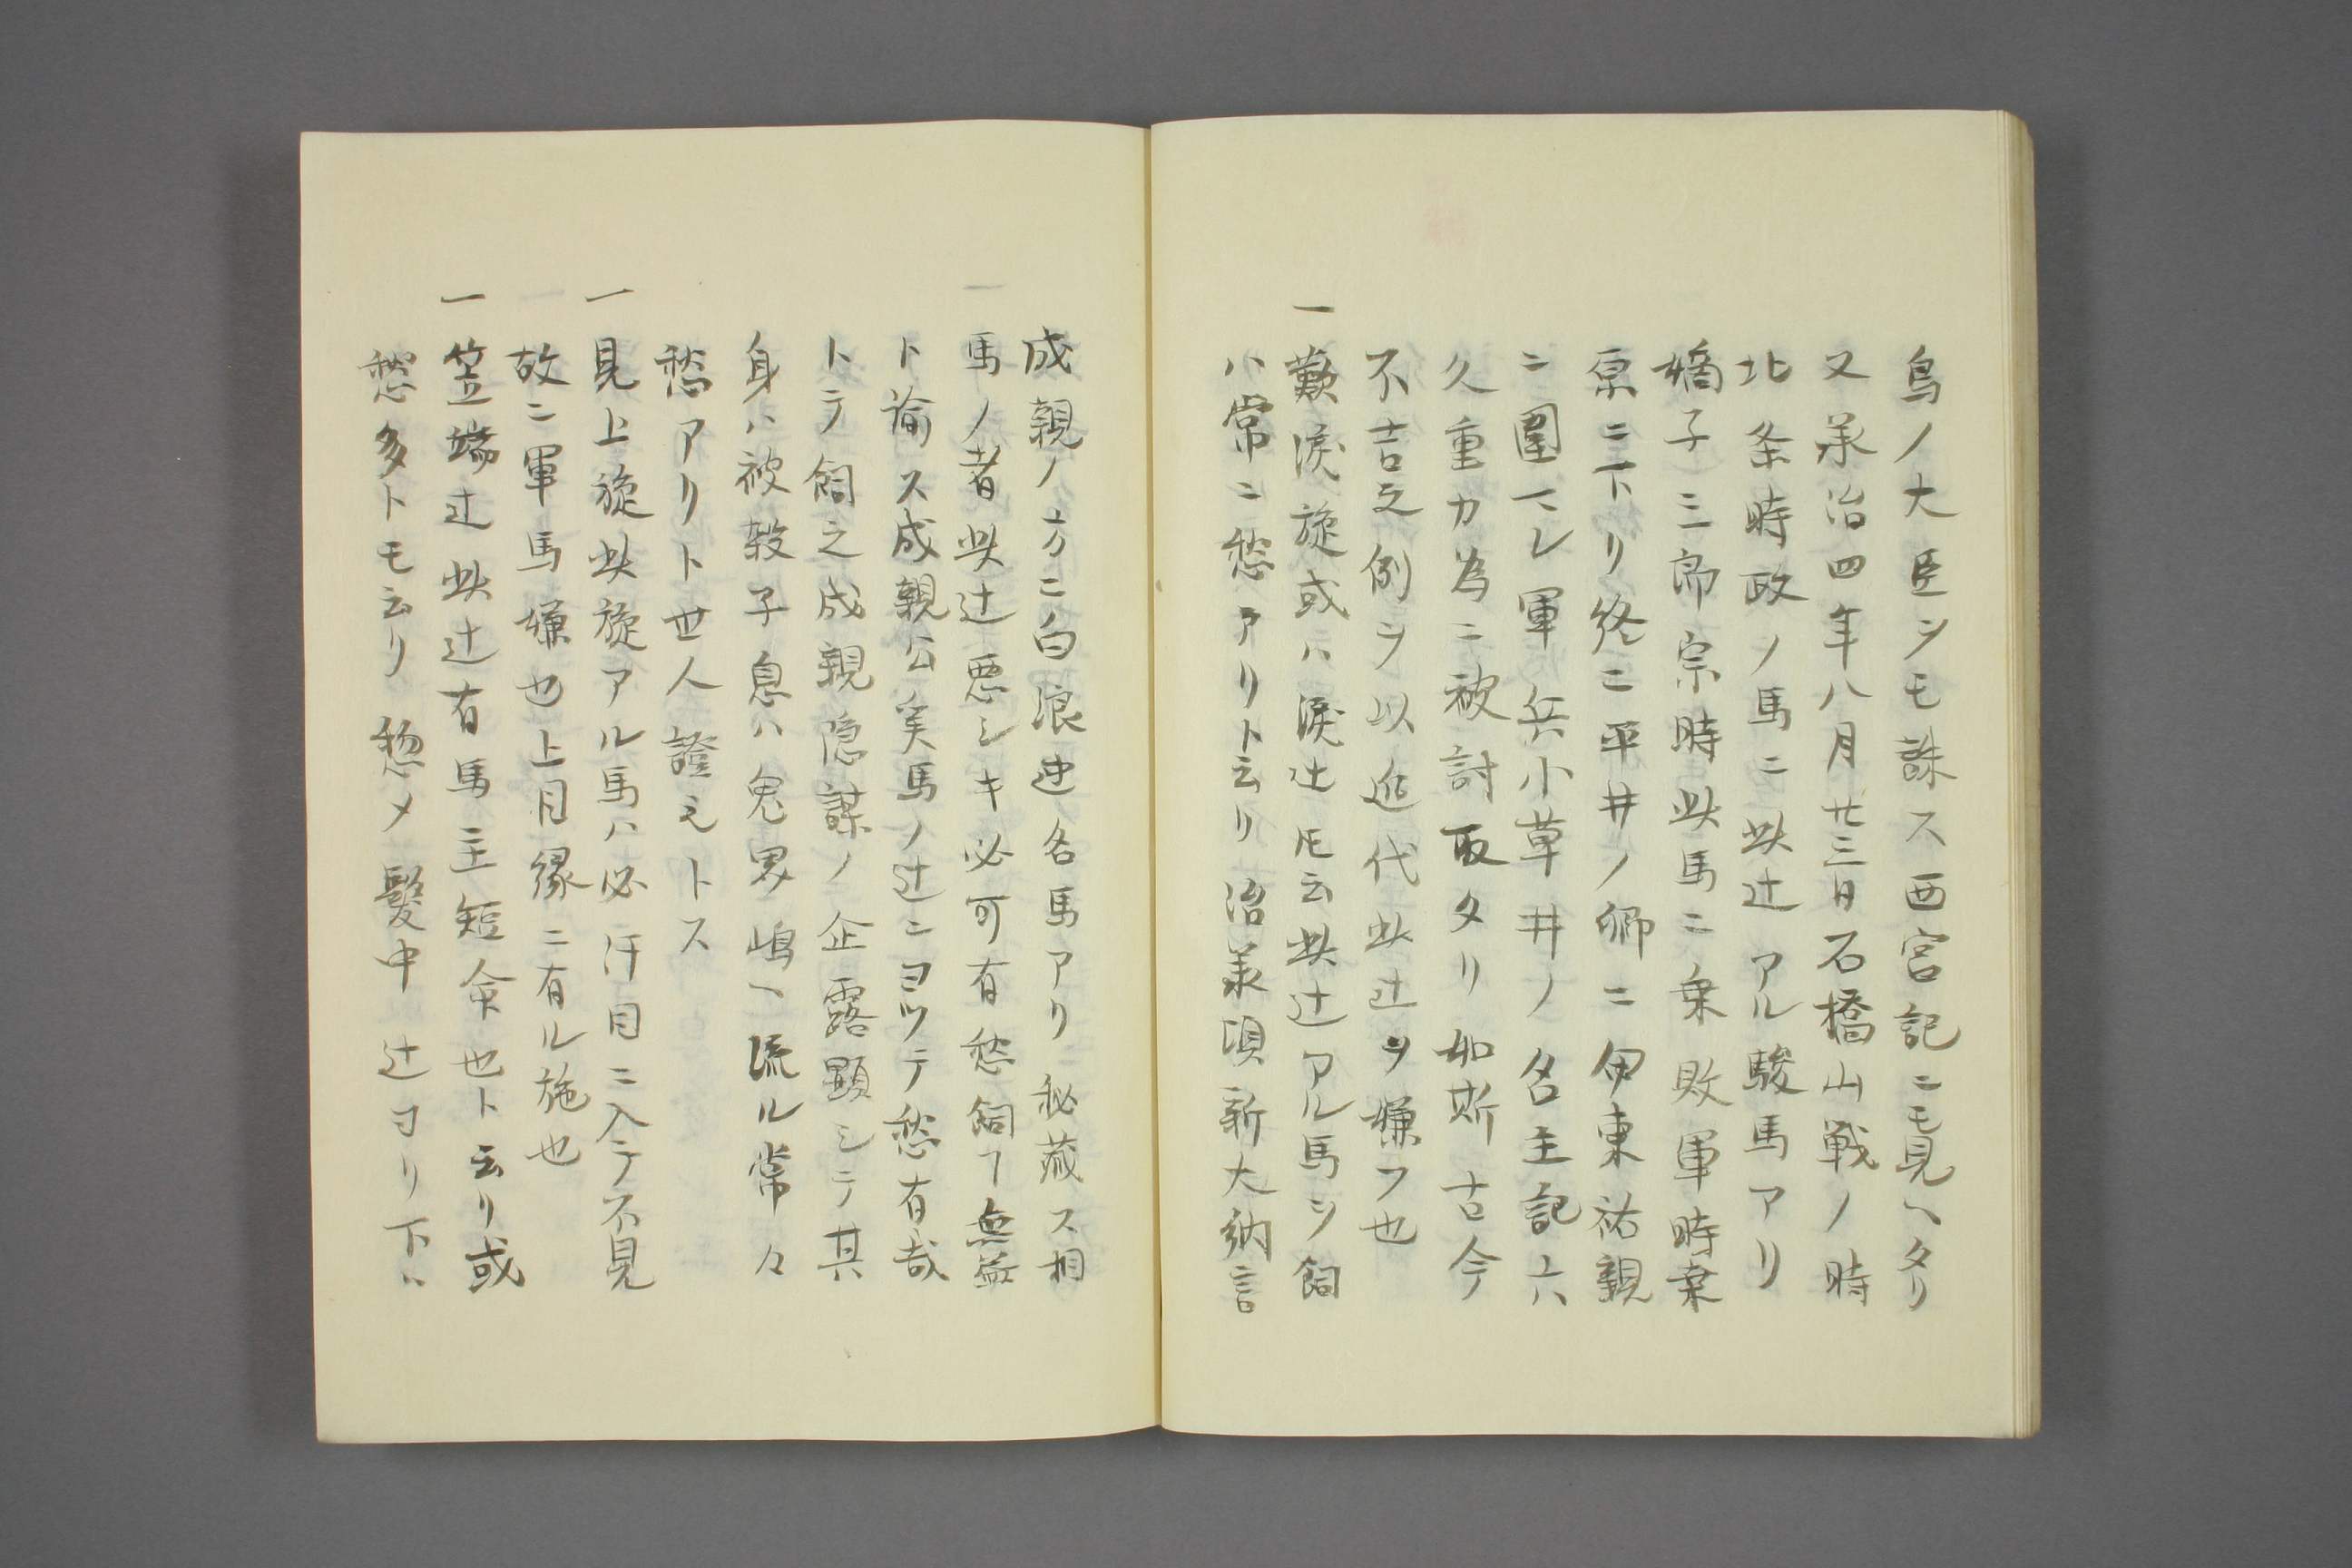 鳥ノ大臣ヲモ誅ス西宮記ニモ見ヘタリ
又承治四年八月廿三日石橋山戦ノ時
北条時政ノ馬ニ此辻アル駿馬アリ
嫡子三郎宗時此馬ニ乗敗軍時桒
原ニ下リ終ニ平井ノ郷ニ伊東祐親
ニ圍マレ軍兵小草井ノ名主記六
久重カ為ニ被討取タリ如斯古今
不吉之例ヲ以近代此辻ヲ嫌フ也
一歎涙旋或ハ涙辻𪜈云此辻アル馬ヲ飼
ハ常ニ愁アリト云リ治承頃新大納言
成親ノ方ニ白浪ト名馬アリ秘蔵ス相
馬ノ者此辻悪シキ必可有愁飼フ無益
ト諭ス成親公笑馬ノ辻ニヨツテ愁有哉
トテ飼之成親隠謀ノ企露顕シテ其
身ハ被殺子息ハ鬼界嶋ヘ流ル常々
愁アリト世人證之トス
一見上旋此旋アル馬ハ必汗目ニ入テ不見
故ニ軍馬嫌也上目縁ニ有ル旋也
一笠端辻此辻有馬主短命也ト云リ或
愁多トモ云リ惣〆髪中辻ヨリ下ハ